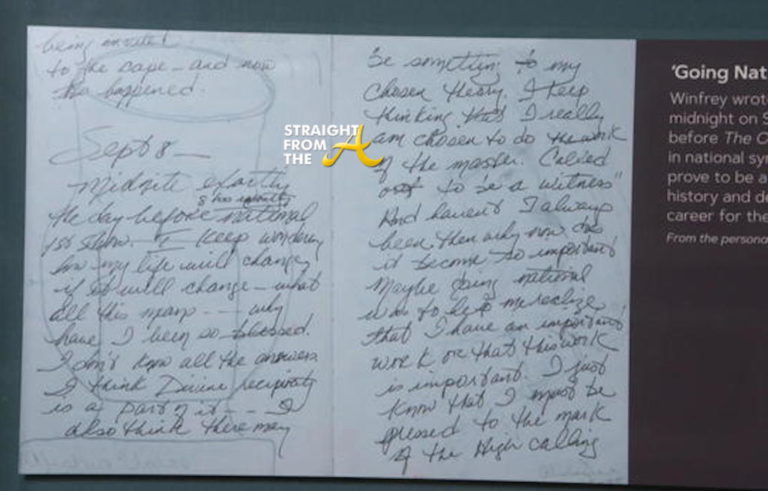 to the cape - and now
this happened.
Sept 8 -
Midnite exactly
8 hrs
the day before national
1st show. I keep wondering
how my life will change,
if it will change - what
all this means - - - why
have I been so blessed.
I don't know all the answers.
I think Divine reciprocity
is a part of it - - - I
also think there may
be something to my
chosen theory. I keep
thinking that I really
am chosen to do the work
of the master. Called
out to be a witness"
And haven't I always
been then why now does
it become so important
Maybe going national
was to help me realize
that I have an important
work or that this work
is important. I just
know that I must be
pressed to the mark
of the High calling
STRAIGHT
FROM
THE A
'Going Nat
Winfrey wrote
midnight on S
before The O
in national syn
prove to be a
history and de
career for the
From the persona